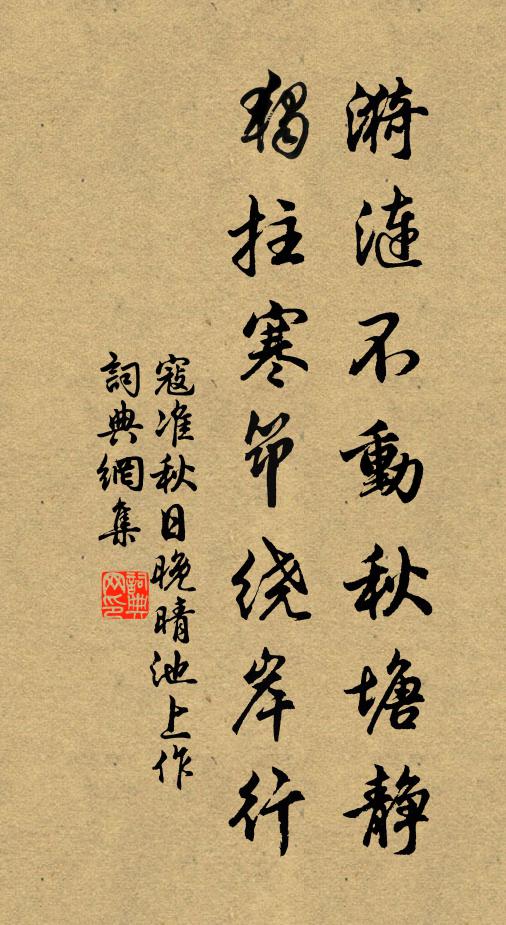 漪漣不動秋塘静
獨拄寒筇绕岸行
寇准秋日晚晴池上作
詞典網集
詞典网印